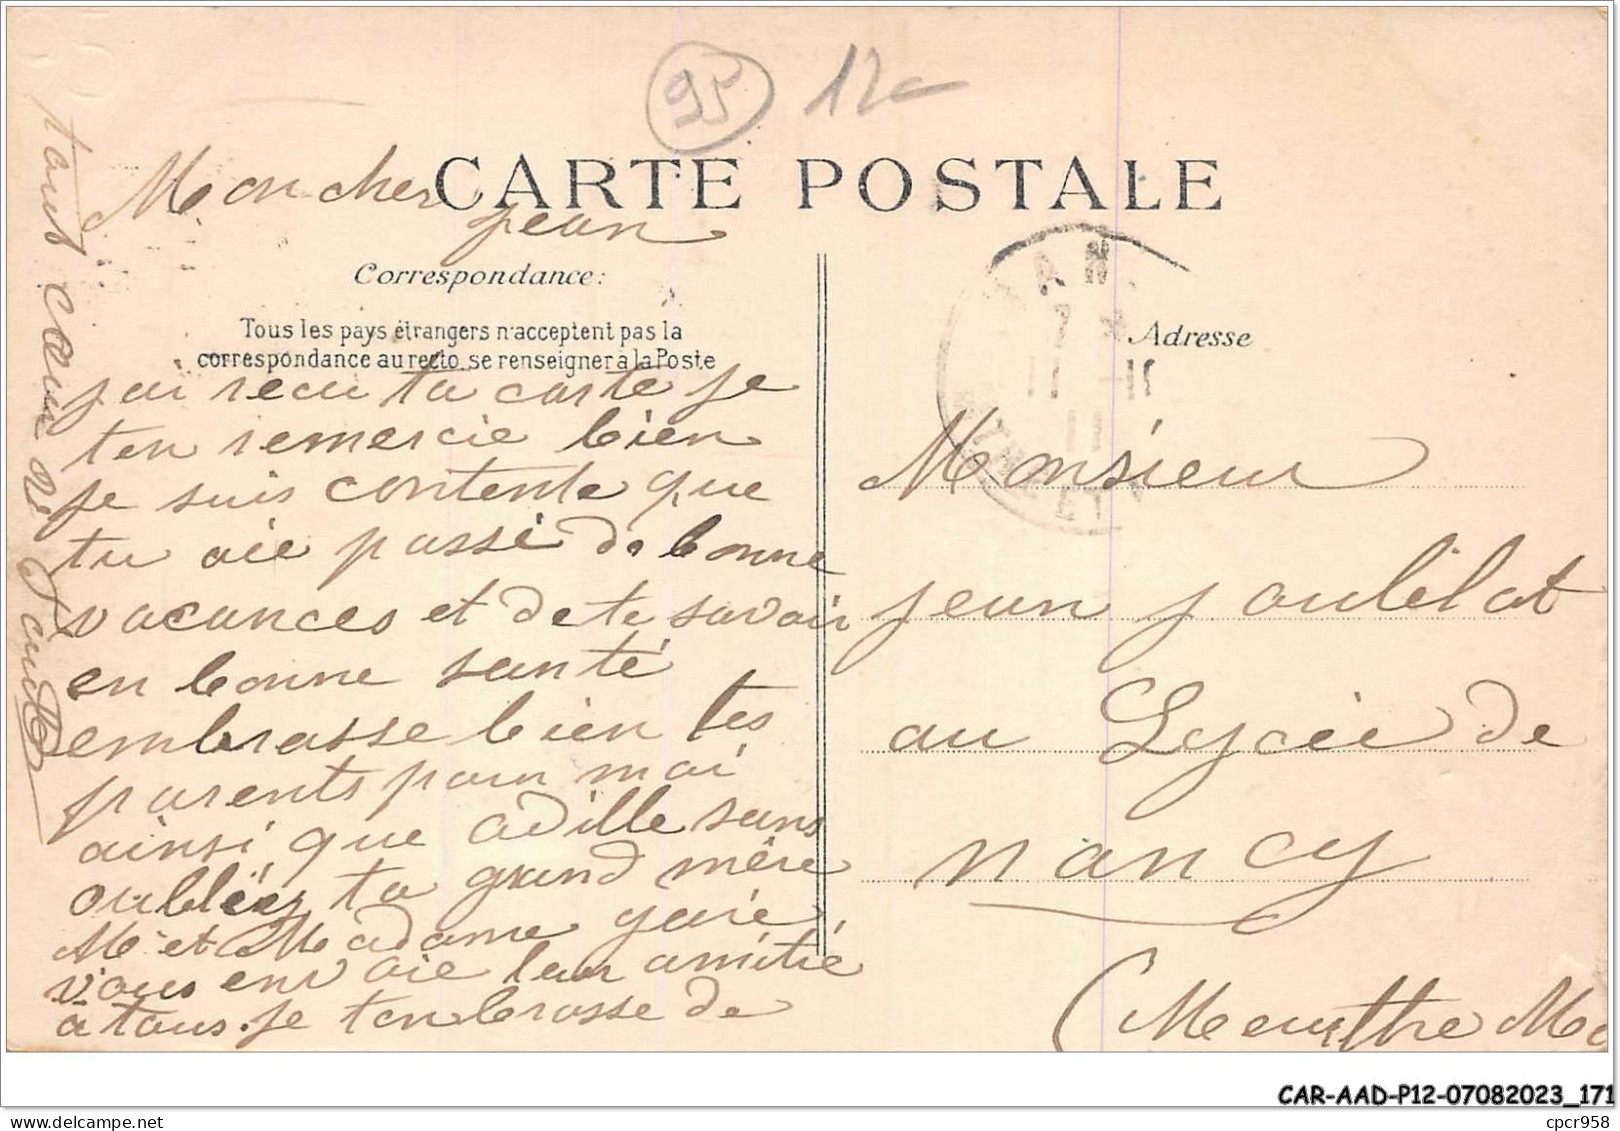 95 12
CARTE POSTALE
Mon cher
jean
Correspondance:
Tous les pays étrangers n'acceptent pas la
correspondance au recto. se renseigner à la Poste
j'ai recu ta carte je
ten remercie bien
je suis contente que
tu aie passé de bonne
vacances et de te savoir
en bonne santé
embrasse bien tes
parents pour moi
ainsi que adille sans
oubliez ta grand mère
Mr et Madame
vous envoie leur amitié
a tous. je tenbrasse de
tout cœur
Adresse
Monsieur
jean
au Lycée de
nancy
(Meurthe M
CAR-AAD-P12-07082023_171
cpcr958